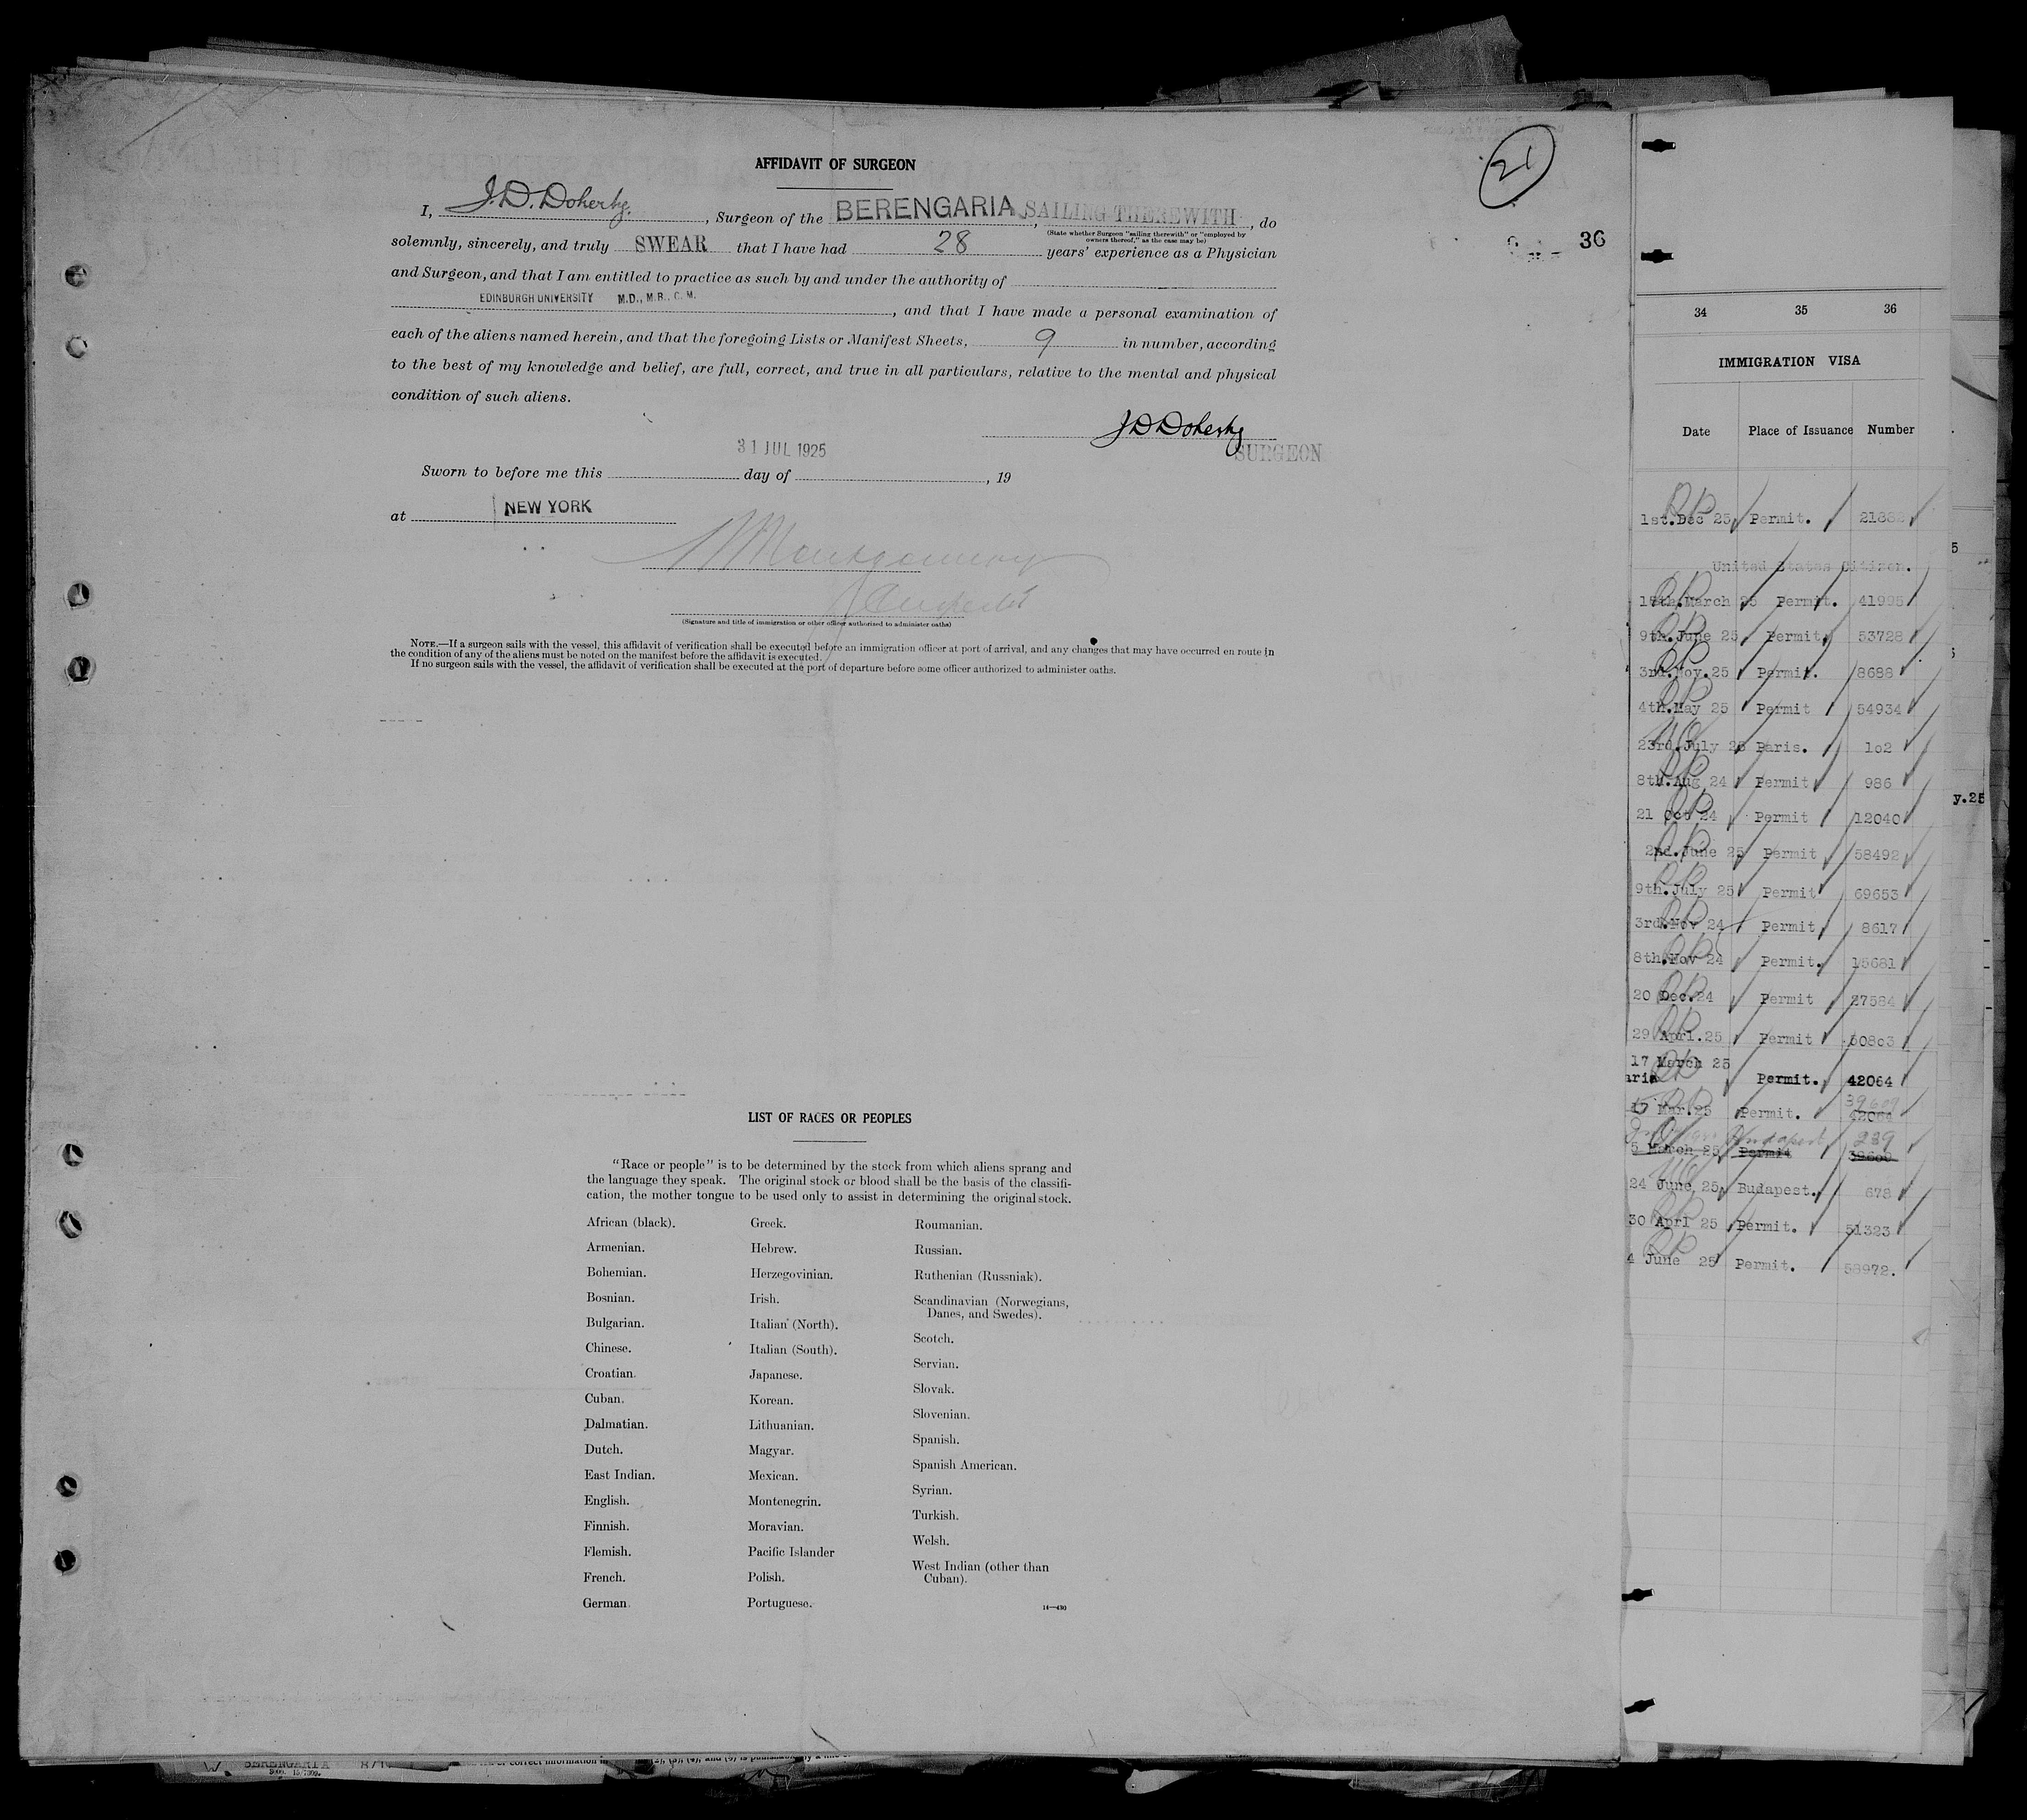 AFFIDAVIT OF SURGEON
21
I, J. D. Doherty, Surgeon of the BERENGARIA, SAILING THEREWITH, do
(State whether Surgeon "sailing therewith" or "employed by owners thereof," as the case may be)
solemnly, sincerely, and truly SWEAR that I have had 28 years' experience as a Physician
36
and Surgeon, and that I am entitled to practice as such by and under the authority of
EDINBURGH UNIVERSITY M.D., M.B., C. M.
, and that I have made a personal examination of
each of the aliens named herein, and that the foregoing Lists or Manifest Sheets, 9 in number, according
to the best of my knowledge and belief, are full, correct, and true in all particulars, relative to the mental and physical
condition of such aliens.
J D Doherty
SURGEON
31 JUL 1925
Sworn to before me this day of , 19
at NEW YORK
Montgomery
(Signature and title of immigration or other officer authorized to administer oaths)
NOTE.—If a surgeon sails with the vessel, this affidavit of verification shall be executed before an immigration officer at port of arrival, and any changes that may have occurred en route in
the condition of any of the aliens must be noted on the manifest before the affidavit is executed.
If no surgeon sails with the vessel, the affidavit of verification shall be executed at the port of departure before some officer authorized to administer oaths.
LIST OF RACES OR PEOPLES
"Race or people" is to be determined by the stock from which aliens sprang and
the language they speak. The original stock or blood shall be the basis of the classifi-
cation, the mother tongue to be used only to assist in determining the original stock.
African (black).
Armenian.
Bohemian.
Bosnian.
Bulgarian.
Chinese.
Croatian.
Cuban.
Dalmatian.
Dutch.
East Indian.
English.
Finnish.
Flemish.
French.
German.
Greek.
Hebrew.
Herzegovinian.
Irish.
Italian (North).
Italian (South).
Japanese.
Korean.
Lithuanian.
Magyar.
Mexican.
Montenegrin.
Moravian.
Pacific Islander
Polish.
Portuguese.
Roumanian.
Russian.
Ruthenian (Russniak).
Scandinavian (Norwegians,
Danes, and Swedes).
Scotch.
Servian.
Slovak.
Slovenian.
Spanish.
Spanish American.
Syrian.
Turkish.
Welsh.
West Indian (other than
Cuban).
14—430
34 35 36
IMMIGRATION VISA
Date Place of Issuance Number
1st.Dec 25 Permit.
United States Citizen.
March 25 Permit. 41995
9th.June 25 Permit. 53728
3rd.Nov.25 Permit. 8688
4th.May 25 Permit 54934
23rd.July 25 Paris. 102
8th.Aug 24 Permit 986
21 Oct 24 Permit 12040
2nd.June 25 Permit 58492
9th.July 25 Permit 69653
3rd.Nov 24 Permit 8617
8th.Nov 24 Permit. 15681
20 Dec.24 Permit 27584
29 Apr1.25 Permit 50803
17 March 25
aria Permit. 42064
17 Mar.25 Permit. 42064
Budapest 239
5 March 25 Permit
24 June 25 Budapest. 678
30 Aprl 25 Permit. 51323
4 June 25 Permit. 58972.
y.25
BERENGARIA